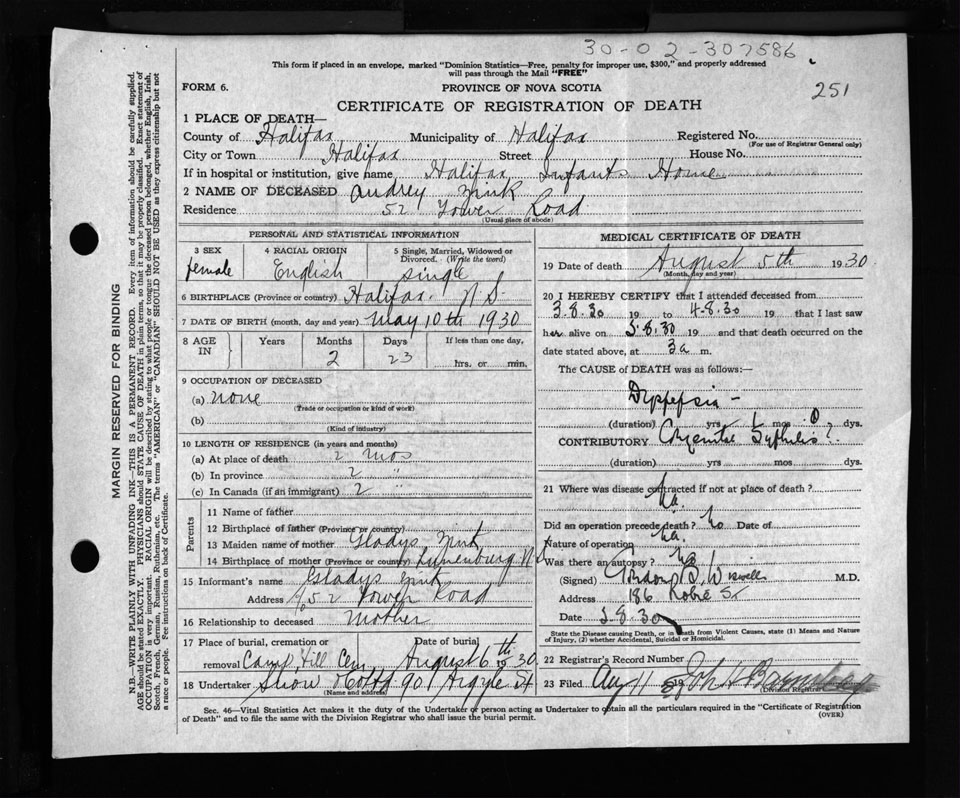 30-02-307586
This form if placed in an envelope, marked "Dominion Statistics—Free, penalty for improper use, $300," and properly addressed
will pass through the Mail "FREE"
FORM 6.
PROVINCE OF NOVA SCOTIA
251
CERTIFICATE OF REGISTRATION OF DEATH
1 PLACE OF DEATH—
County of Halifax Municipality of Halifax Registered No.
(For use of Registrar General only)
City or Town Halifax Street House No.
If in hospital or institution, give name Halifax Infants Home
2 NAME OF DECEASED Audrey Zink
Residence 52 Tower Road
(Usual place of abode)
PERSONAL AND STATISTICAL INFORMATION
3 SEX female
4 RACIAL ORIGIN English
5 Single, Married, Widowed or
Divorced. (Write the word)
single
6 BIRTHPLACE (Province or country) Halifax N S
7 DATE OF BIRTH (month, day and year) May 10th 1930
8 AGE IN Years Months Days If less than one day,
2 23 hrs. or min.
9 OCCUPATION OF DECEASED
(a) none
(Trade or occupation or kind of work)
(b)
(Kind of industry)
10 LENGTH OF RESIDENCE (in years and months)
(a) At place of death 2 mos
(b) In province 2 "
(c) In Canada (if an immigrant) 2 "
Parents
11 Name of father
12 Birthplace of father (Province or country)
13 Maiden name of mother Gladys Zink
14 Birthplace of mother (Province or country) Lunenburg N S
15 Informant's name Gladys Zink
Address 52 Tower Road
16 Relationship to deceased mother
17 Place of burial, cremation or Date of burial
removal Camp Hill Cem August 6th 1930
18 Undertaker Snow 90 Argyle St
(Name and address)
MEDICAL CERTIFICATE OF DEATH
19 Date of death August 5th 1930
(Month, day and year)
20 I HEREBY CERTIFY that I attended deceased from
3.8.30 19 to 4.8.30 19 that I last saw
her alive on 3.8.30 19 and that death occurred on the
date stated above, at 3 a m.
The CAUSE of DEATH was as follows:—
Dyspepsia –
(duration) yrs mos dys.
CONTRIBUTORY Congenital Syphilis?
(duration) yrs mos dys.
21 Where was disease contracted if not at place of death?
na.
Did an operation precede death? no Date of
Nature of operation na.
Was there an autopsy? no
(Signed) Gordon B. Wiswell M.D.
Address 186 Robie St
Date 5.8.30
State the Disease causing Death, or in Death from Violent Causes, state (1) Means and Nature
of Injury, (2) whether Accidental, Suicidal or Homicidal.
22 Registrar's Record Number
23 Filed Aug 11 19
(Division Registrar)
Sec. 46—Vital Statistics Act makes it the duty of the Undertaker or person acting as Undertaker to obtain all the particulars required in the "Certificate of Registration
of Death" and to file the same with the Division Registrar who shall issue the burial permit.
(OVER)
MARGIN RESERVED FOR BINDING
N.B.—WRITE PLAINLY WITH UNFADING INK—THIS IS A PERMANENT RECORD. Every item of information should be carefully supplied.
AGE should be stated EXACTLY. PHYSICIANS should STATE CAUSE OF DEATH in plain terms, so that it may be properly classified. Exact statement of
OCCUPATION is very important. RACIAL ORIGIN will be described by stating to what people or tongue the deceased person belonged, whether English, Irish,
Scotch, French, German, Russian, Ruthenian, etc. The terms "AMERICAN" or "CANADIAN" SHOULD NOT BE USED as they express citizenship but not
a race or people. See instructions on back of Certificate.